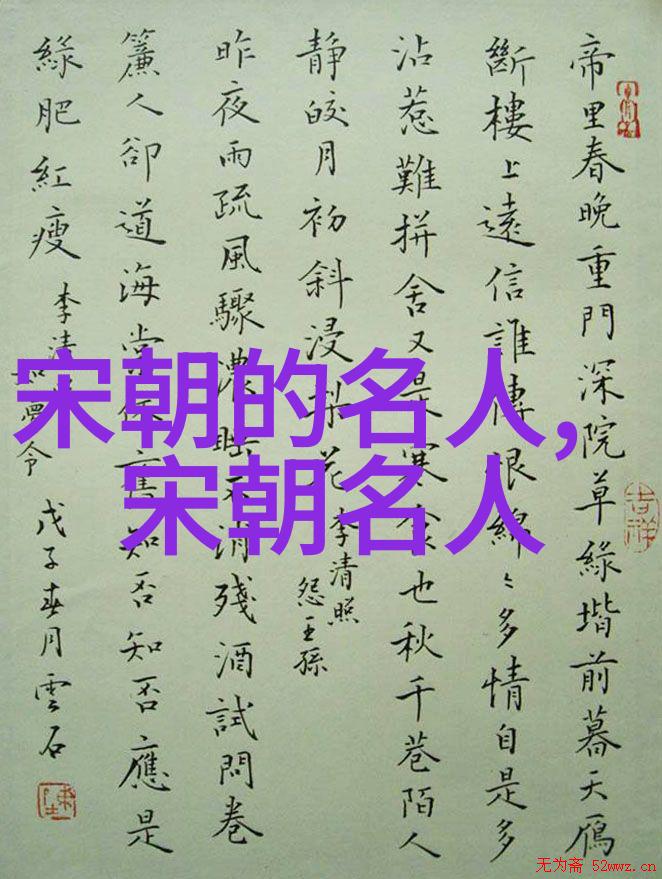 宋朝的名人,
宋朝名人
帝里春晚重門深院草緑堦前暮天鴈
斷樓上遠信誰傳恨綿〻多情自是多
沾惹難拼舍又是寒食也秋千巷陌人
靜皎月初斜浸梨花 李清照
怨王孫
昨夜雨疏風驟濃睡不消殘酒試問卷
簾人卻道海棠依舊知否知否應是
緑肥紅瘦 李清
如夢令 戊子春月雲石
吉祥
无为斋 52wwz.cn